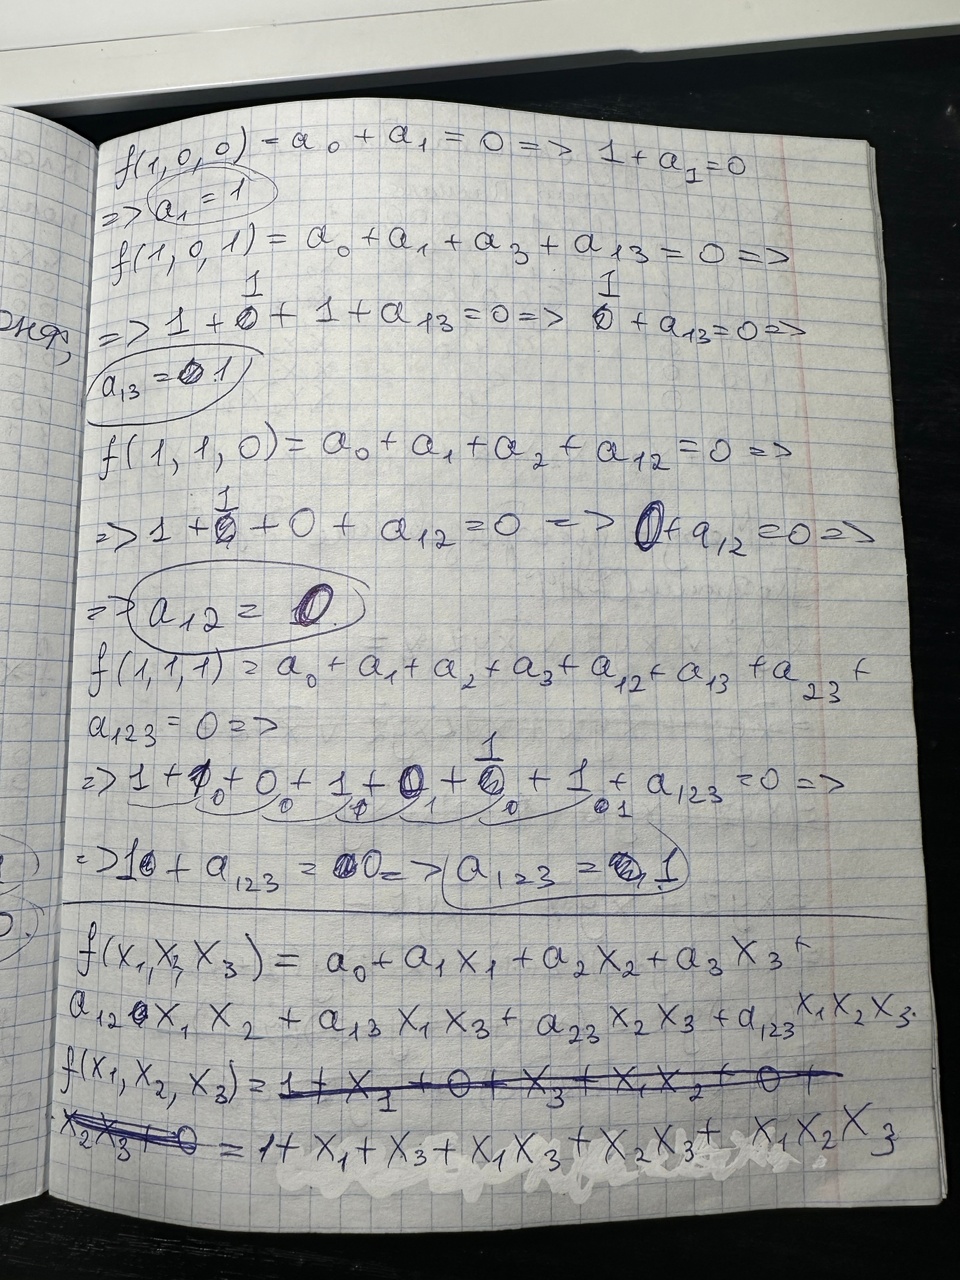 f(1,0,0) = a₀ + a₁ = 0 => 1 + a₁ = 0
=> a₁ = 1
f(1,0,1) = a₀ + a₁ + a₃ + a₁₃ = 0 =>
=> 1 + 1 + 1 + a₁₃ = 0 => 1 + a₁₃ = 0 =>
a₁₃ = 1
f(1,1,0) = a₀ + a₁ + a₂ + a₁₂ = 0 =>
=> 1 + 1 + 0 + a₁₂ = 0 => 0 + a₁₂ = 0 =>
=> a₁₂ = 0
f(1,1,1) = a₀ + a₁ + a₂ + a₃ + a₁₂ + a₁₃ + a₂₃ +
a₁₂₃ = 0 =>
=> 1 + 1 + 0 + 1 + 0 + 1 + 1 + a₁₂₃ = 0 =>
=> 1 + a₁₂₃ = 0 => a₁₂₃ = 1
f(x₁,x₂,x₃) = a₀ + a₁x₁ + a₂x₂ + a₃x₃ +
a₁₂x₁x₂ + a₁₃x₁x₃ + a₂₃x₂x₃ + a₁₂₃x₁x₂x₃.
f(x₁,x₂,x₃) = 1 + x₁ + 0 + x₃ + x₁x₂ + 0 +
x₂x₃ + 0 = 1 + x₁ + x₃ + x₁x₃ + x₂x₃ + x₁x₂x₃